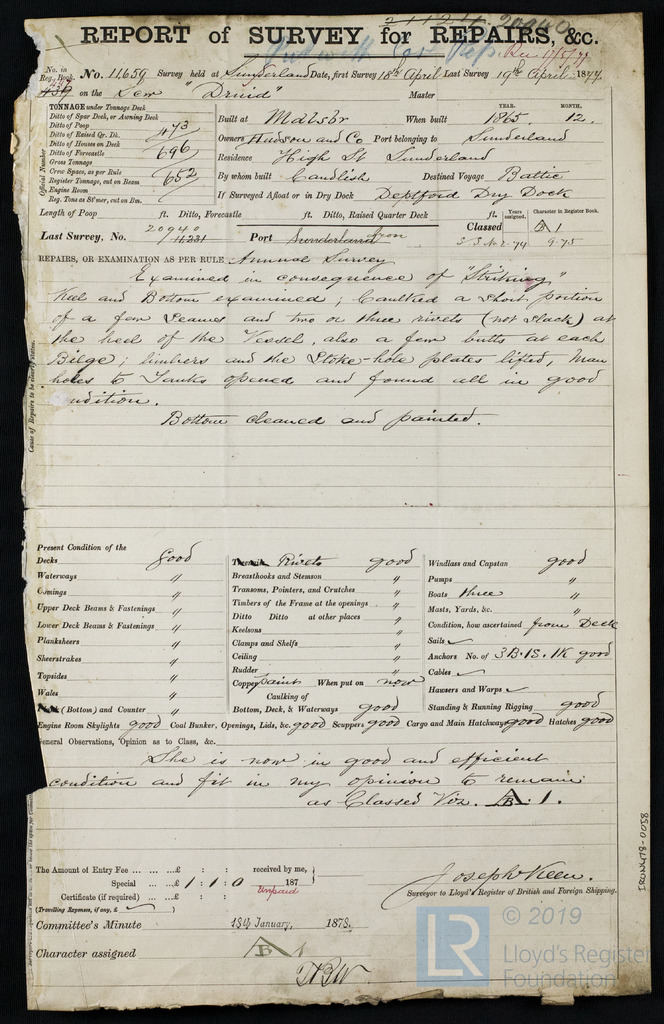 21124 20940
REPORT of SURVEY for REPAIRS, &c.
Rec 11/5/77
No. in Reg. Book. No. 11659 Survey held at Sunderland Date, first Survey 18th April Last Survey 19th April 1877
436 on the Scw "Druid" Master
TONNAGE under Tonnage Deck
Ditto of Spar Deck, or Awning Deck
Ditto of Poop
Ditto of Raised Qr. Dk. 473
Ditto of Houses on Deck
Ditto of Forecastle 696
Gross Tonnage
Crew Space, as per Rule 652
Register Tonnage, cut on Beam
Engine Room
Reg. Tons as St'mer, cut on Bm.
Official Number
Built at Mdlsbr When built YEAR. 1865 MONTH. 12.
Owners Hudson and Co Port belonging to Sunderland
Residence High St Sunderland
By whom built Candlish Destined Voyage Baltic
If Surveyed Afloat or in Dry Dock Deptford Dry Dock
Length of Poop ft. Ditto, Forecastle ft. Ditto, Raised Quarter Deck ft. Years assigned. Character in Register Book.
20940 Iron Classed A 1
Last Survey, No. 11,231 Port Sunderland 9.75
REPAIRS, OR EXAMINATION AS PER RULE Annual Survey
Examined in consequence of "Striking"
Keel and Bottom examined; Caulked a short portion
of a few Seams and two or three rivets (not slack) at
the heel of the Vessel, also a few butts at each
Bilge; limbers and the Stoke-hole plates lifted, Man
holes to Tanks opened and found all in good
ndition.
Bottom cleaned and painted.
Cause of Repairs to be clearly stated.
Present Condition of the
Decks good
Waterways "
Comings "
Upper Deck Beams & Fastenings "
Lower Deck Beams & Fastenings "
Planksheers "
Sheerstrakes "
Topsides "
Wales "
(Bottom) and Counter "
Rivets good
Breasthooks and Stemson "
Transoms, Pointers, and Crutches "
Timbers of the Frame at the openings "
Ditto Ditto at other places "
Keelsons "
Clamps and Shelfs "
Ceiling "
Rudder "
Copper paint When put on now
Caulking of
Bottom, Deck, & Waterways good
Windlass and Capstan good
Pumps "
Boats three "
Masts, Yards, &c. "
Condition, how ascertained from Deck
Sails ✓
Anchors No. of 3B.1S.1K good
Cables ✓
Hawsers and Warps ✓
Standing & Running Rigging good
Engine Room Skylights good Coal Bunker, Openings, Lids, &c. good Scuppers good Cargo and Main Hatchways good Hatches good
eneral Observations, Opinion as to Class, &c.
She is now in good and efficient
condition and fit in my opinion to remain
as Classed Viz. A B 1.
The Amount of Entry Fee ... ... £ : : received by me,
Special ... ... £ 1 : 1 : 0 187
Unpaid
Certificate (if required) ... £ : :
(Travelling Expenses, if any, £ ✓ )
Joseph Keen.
Surveyor to Lloyd's Register of British and Foreign Shipping.
Committee's Minute 18th January, 1878.
Character assigned A B 1
IRON487-0058
© 2019
LR
Lloyd's Register
Foundation